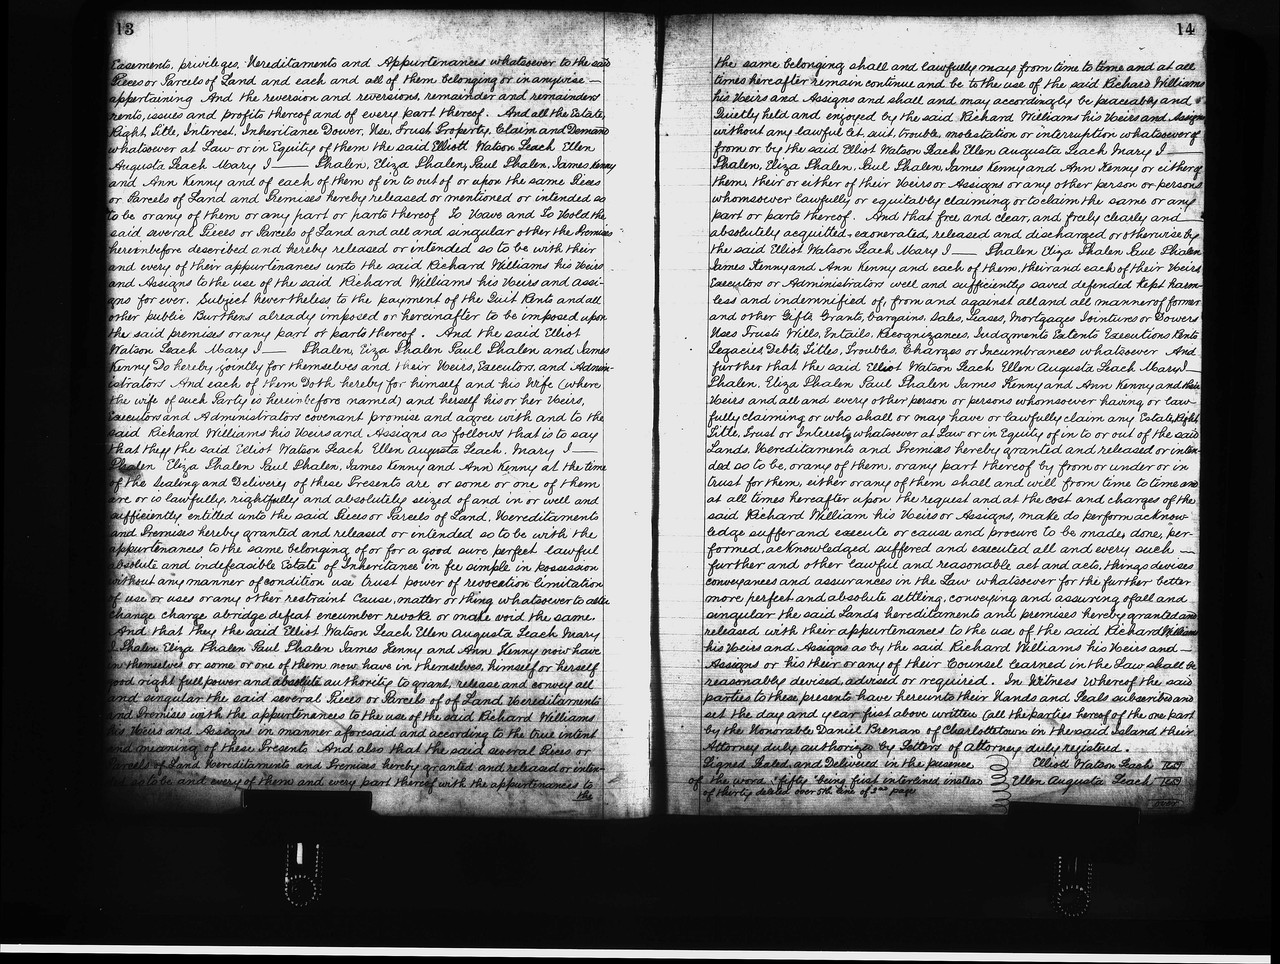 13
Easements, privileges, Hereditaments and Appurtenances whatsoever to the said
Pieces or Parcels of Land and each and all of them belonging or in anywise —
appertaining And the reversion and reversions, remainder and remainders
rents, issues and profits thereof and of every part thereof. And all the Estate,
Right, Title, Interest, Inheritance Dower, Use, Trust Property, Claim and Demand
whatsoever at Law or in Equity of them the said Elliott Watson Leach Ellen
Augusta Leach Mary I — Phalen, Eliza Phalen, Paul Phalen, James Kenny
and Ann Kenny and of each of them of in to out of or upon the same Pieces
or Parcels of Land and Premises hereby released or mentioned or intended so
to be or any of them or any part or parts thereof To Have and To Hold the
said several Pieces or Parcels of Land and all and singular other the Premises
hereinbefore described and hereby released or intended so to be with their
and every of their appurtenances unto the said Richard Williams his Heirs
and Assigns to the use of the said Richard Williams his Heirs and assi-
gns for ever. Subject nevertheless to the payment of the Quit Rents and all
other public Burthens already imposed or hereinafter to be imposed upon
the said premises or any part or parts thereof. And the said Elliot
Watson Leach Mary I — Phalen, Eliza Phalen Paul Phalen and James
Kenny Do hereby jointly for themselves and their Heirs, Executors, and Admin-
istrators And each of them Doth hereby for himself and his Wife (where
the wife of such Party is hereinbefore named) and herself his or her Heirs,
Executors and Administrators covenant promise and agree with and to the
said Richard Williams his Heirs and Assigns as follows that is to say
that they the said Elliot Watson Leach Ellen Augusta Leach, Mary I —
Phalen Eliza Phalen Paul Phalen, James Kenny and Ann Kenny at the time
of the Sealing and Delivery of these Presents are or some or one of them
are or is lawfully, rightfully, and absolutely seized of and in or well and
sufficiently entitled unto the said Pieces or Parcels of Land, Hereditaments
and Premises hereby granted and released or intended so to be with the
appurtenances, to the same belonging of or for a good sure perfect lawful
absolute and indefeasible Estate of Inheritance in fee simple in possession
without any manner of condition use trust power of revocation limitation
of use or uses or any other restraint Cause, matter or thing whatsoever to alter
change charge abridge defeat encumber revoke or make void the same.
And that they the said Elliot Watson Leach Ellen Augusta Leach Mary
I Phalen Eliza Phalen Paul Phalen James Kenny and Ann Kenny now have
in themselves or some or one of them now have in themselves, himself or herself
good right full power and absolute authority to grant, release and convey all
and singular the said several Pieces or Parcels of of Land Hereditaments
and Premises with the appurtenances to the use of the said Richard Williams
his Heirs and Assigns in manner aforesaid and according to the true intent
and meaning of these Presents And also that the said several Pieces or
Parcels of Land Hereditaments and Premises hereby granted and released or inten-
so to be and every of them and every part thereof with the appurtenances to
the
14
the same belonging shall and lawfully may from time to time and at all
times hereafter remain continue and be to the use of the said Richard Williams
his Heirs and Assigns and shall and may accordingly be peaceably and
Quietly held and enjoyed by the said Richard Williams his Heirs and Assigns
without any lawful let, suit, trouble, molestation or interruption whatsoever of
from or by the said Elliot Watson Leach Ellen Augusta Leach Mary I —
Phalen, Eliza Phalen, Paul Phalen, James Kenny and Ann Kenny or either of
them, their or either of their Heirs or Assigns or any other person or persons
whomsoever lawfully or equitably claiming or to claim the same or any
part or parts thereof. And that free and clear, and freely clearly and —
absolutely acquitted, exonerated, released and discharged or otherwise by
the said Elliot Watson Leach Mary I — Phalen Eliza Phalen Paul Phalen
James Kenny and Ann Kenny and each of them, their and each of their Heirs
Executors or Administrators well and sufficiently saved defended Kept harm-
less and indemnified of, from and against all and all manner of former
and other Gifts Grants, Bargains, Sales, Leases, Mortgages Jointures or Dowers
Uses Trusts Wills, Entails, Recognizances, Judgments Extents Executions Rents
Legacies, Debts, Titles, Troubles, Charges or Incumbrances whatsoever And
further that the said Elliot Watson Leach Ellen Augusta Leach Mary I —
Phalen, Eliza Phalen Paul Phalen James Kenny and Ann Kenny and their
Heirs and all and every other person or persons whomsoever having or law-
fully claiming or who shall or may have or lawfully claim any Estate, Right
Title, Trust or Interest, whatsoever at Law or in Equity of in to or out of the said
Lands, Hereditaments and Premises hereby granted and released or inten-
ded so to be, or any of them, or any part thereof by from or under or in
trust for them, either or any of them shall and will from time to time and
at all times hereafter upon the request and at the cost and charges of the
said Richard William his Heirs or Assigns, make do perform acknow-
ledge suffer and execute or cause and procure to be made, done, per-
formed, acknowledged suffered and executed all and every such —
further and other lawful and reasonable act and acts, things devises
conveyances and assurances in the Law whatsoever for the further better
more perfect and absolute settling, conveying and assuring of all and
singular the said Lands hereditaments and premises hereby granted and
released with their appurtenances to the use of the said Richard Williams
his Heirs and Assigns as by the said Richard Williams his Heirs and —
Assigns or his their or any of their Counsel learned in the Law shall be
reasonably devised, advised or required. In Witness Whereof the said
parties to these presents have hereunto their Hands and Seals subscribed and
set the day and year first above written (all the parties hereof of the one part
by the Honorable Daniel Brenan of Charlottetown in the said Island their
Attorney duly authorized by Letters of attorney duly registered.
Signed Sealed and Delivered in the presence Elliott Watson Leach Seal
of the word "fifty" being first interlined instead Ellen Augusta Leach Seal
of thirty deleted over 5th line of 3rd page